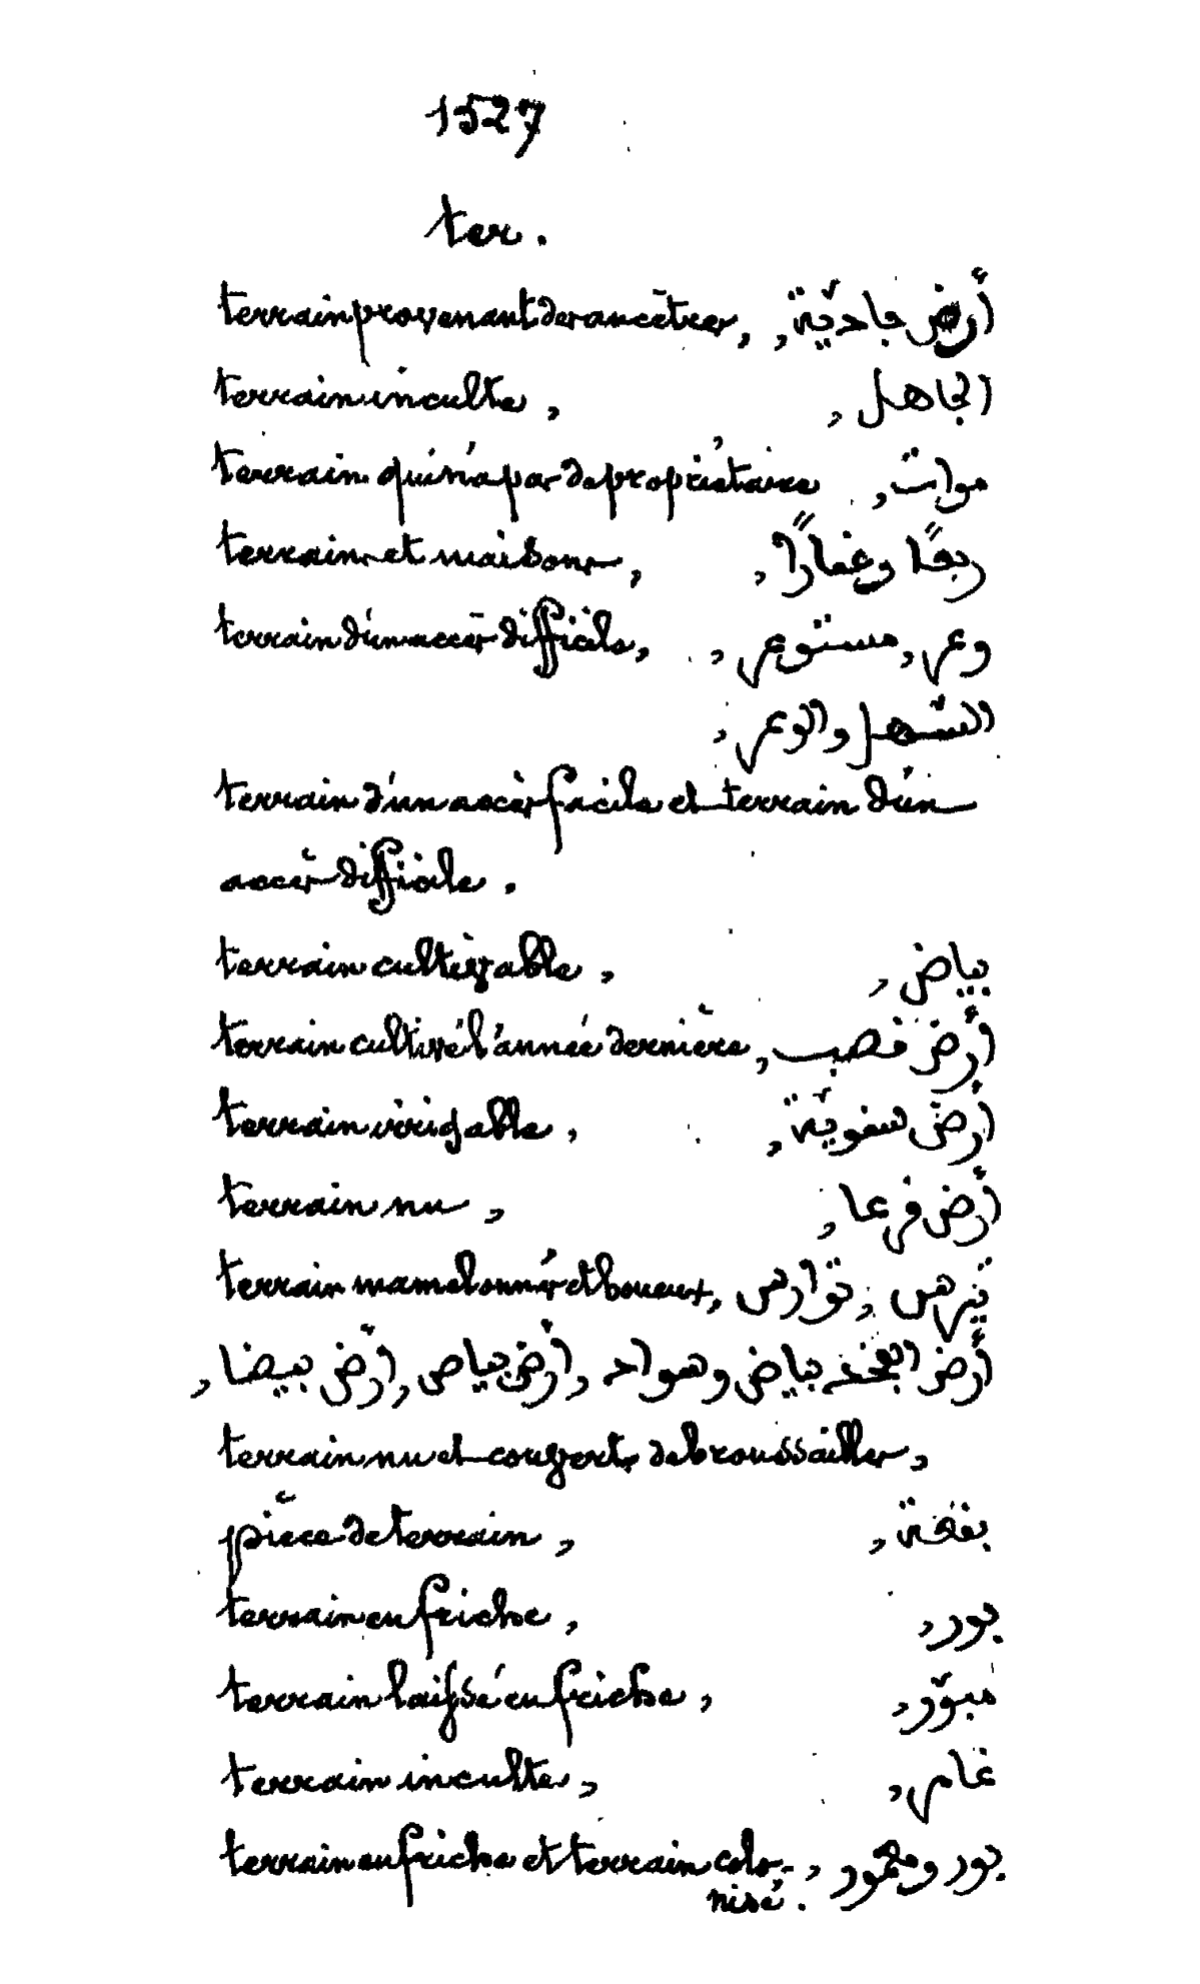 1527
ter.
terrain provenant des ancêtres, أرض جاديّة,
terrain inculte, الجاهل,
terrain qui n'a pas de propriétaire موات,
terrain et maisons,
terrain d'un accès difficile, وعر, مستوعر,
السّهل والوعر,
terrain d'un accès facile et terrain d'un
accès difficile.
terrain cultivable, بياض,
terrain cultivé l'année dernière, أرض قصب
terrain irrigable, أرض سقويّة,
terrain nu, أرض قرعا,
terrain mamelonné et boueux, تيرس, توارس
أرض بياض وسواد, أرض بياض, أرض بيضا,
terrain nu et couvert de broussailles,
pièce de terrain, بقعة,
terrain en friche, بور,
terrain laissé en friche, مبوّر,
terrain inculte, غامر,
terrain en friche et terrain colo- بور ومعمور,
nisé.